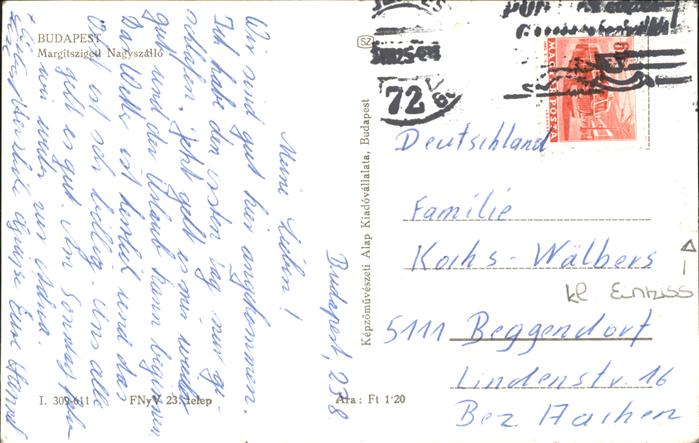 BUDAPEST
Margitszigeti Nagyszálló
Budapest, 23.8
Meine Lieben!
Wir sind gut hier angekommen.
Ich habe den ersten Tag nur ge-
schlafen. Jetzt geht es mir wieder
gut und der Urlaub kann beginnen.
Das Wetter ist herrlich und das
ist sehr billig. Uns allen
geht es gut. Am Sonntag
wir weiter zur Adria.
Grüße Eure
I. 309-611
FNyV 23. telep
Ára: Ft 1·20
Képzőművészeti Alap Kiadóvállalata, Budapest
SZ
72
MAGYAR POSTA
Deutschland
Familie
Kochs-Wälbers
kl Einriss
5111 Beggendorf
Lindenstr. 16
Bez. Aachen